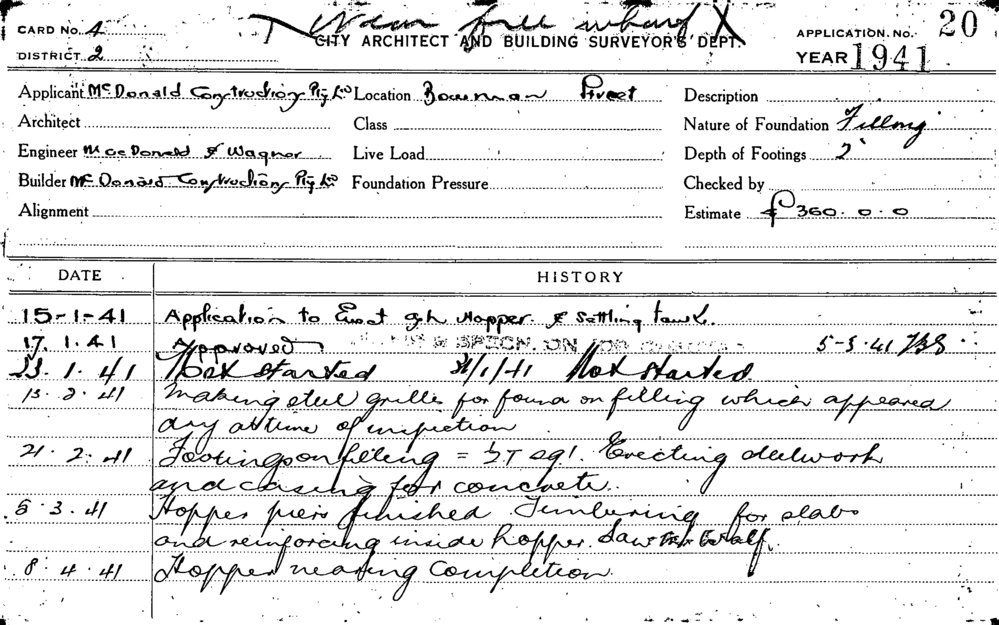 CARD No. 4
DISTRICT 2
near wharf
CITY ARCHITECT AND BUILDING SURVEYOR'S DEPT.
APPLICATION. No. 20
YEAR 1941
Applicant McDonald Construction Pty Ld Location Bowman Street Description
Architect Class Nature of Foundation Filling
Engineer MacDonald & Wagner Live Load Depth of Footings 2'
Builder McDonald Construction Pty Ld Foundation Pressure Checked by
Alignment Estimate £ 360.0.0
DATE HISTORY
15-1-41 Application to Erect ash Hopper & Settling tank.
17.1.41 Approved & SPECN. ON JOB 5-3-41
23.1.41 Not started 31/1/41 Not started
13.2.41 Making steel grilles for found on filling which appeared
dry at time of inspection
21.2.41 Footings on filling = ½T sq'. Erecting steelwork
and casing for concrete.
5.3.41 Hopper piers finished Timbering for slabs
and reinforcing inside hopper. Saw
8.4.41 Hopper nearing completion.